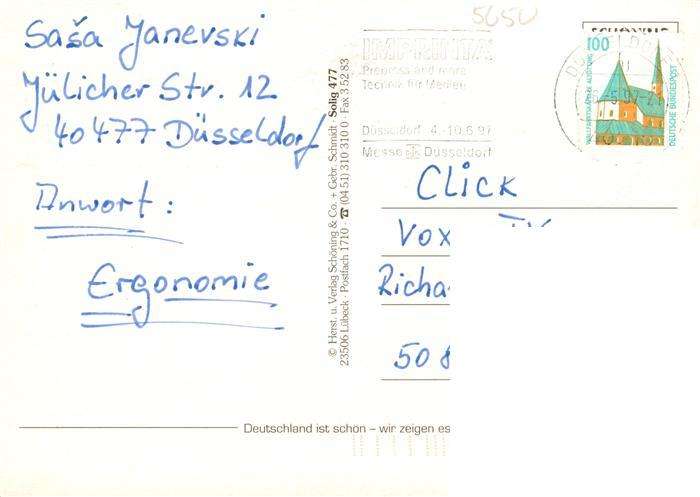 Saša Janevski
Jülicher Str. 12
40477 Düsseldorf
Anwort:
Ergonomie
© Herst. u. Verlag Schöning & Co. + Gebr. Schmidt · Solig 477
23506 Lübeck · Postfach 1710 · ☎ (04 51) 310 310 0 · Fax 3 52 83
5650
IMPRINTA
Prepress and more
Technik für Medien
Düsseldorf 4.-10.6.97
Messe Düsseldorf
SCHÖNING
100
DEUTSCHE BUNDESPOST
Click
TV
Vox
Richa
50
Deutschland ist schön – wir zeigen es